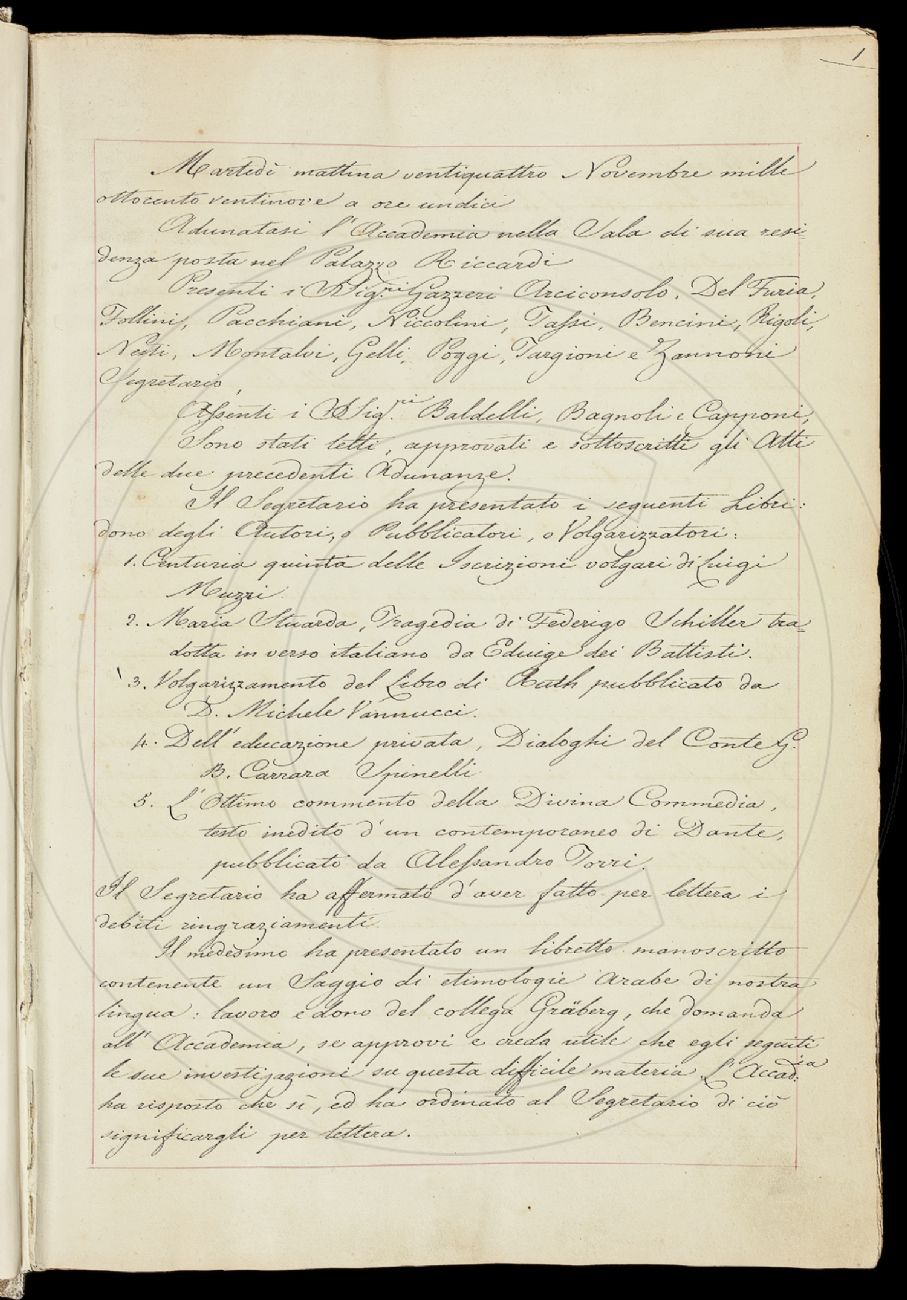 1
Martedì mattina ventiquattro Novembre mille
ottocento ventinove a ore undici
Adunatasi l'Accademia nella Sala di sua resi-
denza posta nel Palazzo Riccardi
Presenti i SSig.ri Gazzeri Arciconsolo, Del Furia,
Follini, Pacchiani, Niccolini, Tassi, Bencini, Rigoli,
Nesti, Montalvi, Gelli, Poggi, Targioni e Zannoni
Segretario,
Assenti i SSig.ri Baldelli, Bagnoli e Capponi,
Sono stati letti, approvati e sottoscritti gli Atti
delle due precedenti Adunanze.
Il Segretario ha presentato i seguenti Libri:
dono degli Autori, o Pubblicatori, o Volgarizzatori:
1. Centuria quinta delle Iscrizioni volgari di Luigi
Muzzi.
2. Maria Stuarda, Tragedia di Federigo Schiller tra-
dotta in verso italiano da Eduige dei Battisti.
3. Volgarizzamento del Libro di Ruth pubblicato da
D. Michele Vannucci.
4. Dell'educazione privata, Dialoghi del Conte G.
B. Carrara Spinelli
5. L'Ottimo commento della Divina Commedia,
testo inedito d'un contemporaneo di Dante,
pubblicato da Alessandro Torri.
Il Segretario ha affermato d'aver fatto per lettera i
debiti ringraziamenti
Il medesimo ha presentato un libretto manoscritto
contenente un Saggio di etimologie Arabe di nostra
lingua: lavoro e dono del collega Gräberg, che domanda
all'Accademia, se approvi e creda utile che egli seguiti
le sue investigazioni su questa difficile materia. L'Accad.ia
ha risposto che sì, ed ha ordinato al Segretario di ciò
significargli per lettera.